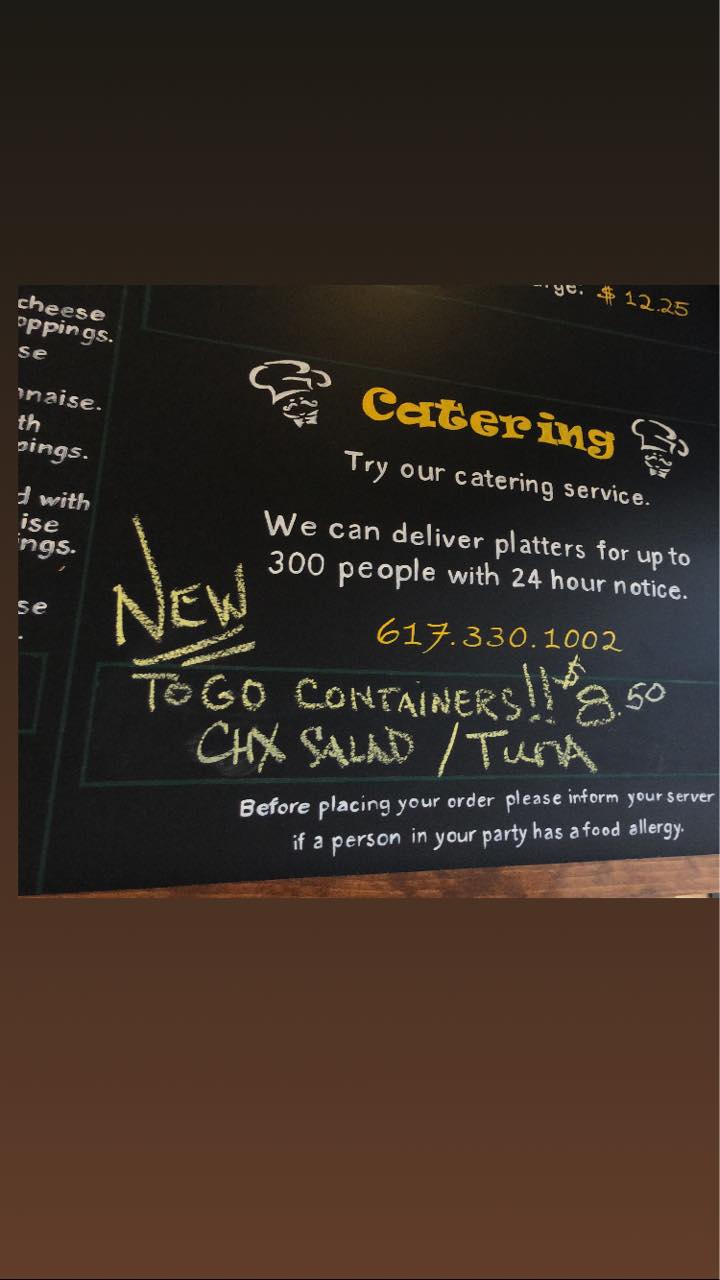 cheese
oppings.
se
nnaise.
th
pings.
d with
ise
ngs.
se
.
rge: $ 12.25
Catering
Try our catering service.
We can deliver platters for up to
300 people with 24 hour notice.
617.330.1002
NEW
TO GO CONTAINERS!! $8.50
CHX SALAD / TUNA
Before placing your order please inform your server
if a person in your party has a food allergy.